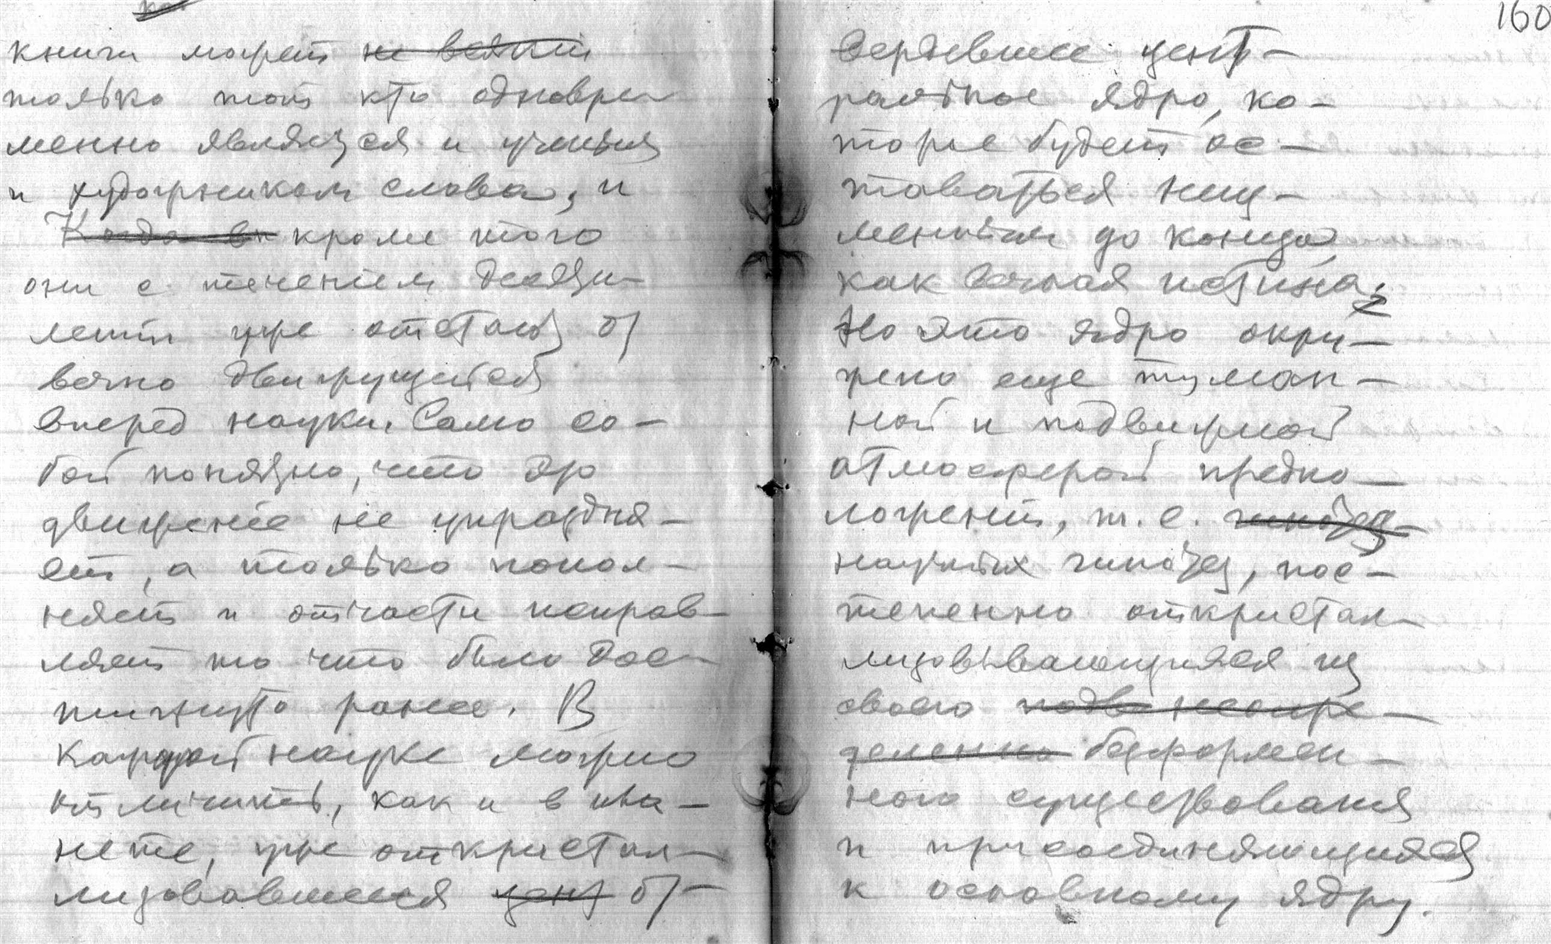 книги может не всякий
только тот кто одновре-
менно является и ученым
и художником слова, и
Когда вн кроме того
они с течением десяти-
летий уже отстают от
вечно движущейся
вперед науки. Само со-
бой понятно, что это
движение не упраздня-
ет, а только попол-
няет и отчасти исправ-
ляет то что было дос-
тигнуто ранее. В
каждой науке можно
отличить, как и в пла-
нете, уже откристал-
лизовавшееся цент от-
160
вердевшее цент-
ральное ядро, ко-
торое будет ос-
таваться неиз-
менным до конца
как вечная истина;
Но это ядро окру-
жено еще туман-
ной и подвижной
атмосферой предпо-
ложений, т.е. гипотез
научных гипотез, пос-
тепенно откристал-
лизовывающихся из
своего неопре-
деленно бесформен-
ного существования
и присоединяющихся
к основному ядру.